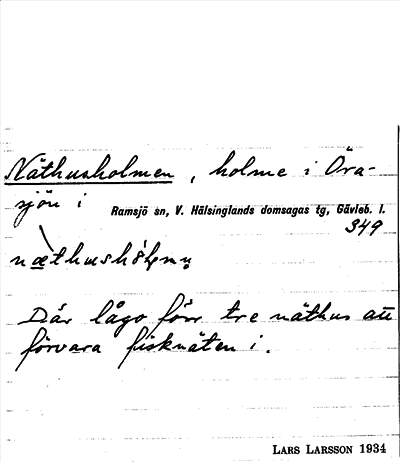 Näthusholmen, holme i Öra-
sjön i Ramsjö sn, V. Hälsinglands domsagas tg, Gävleb. l.
349
Där lågo förr tre näthus att
förvara fisknäten i.
LARS LARSSON 1934